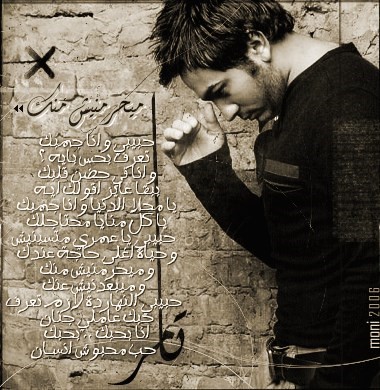 ميحرمنيش منك
حبيبي وانا جمبك
تعرف بحس بايه؟
وانا في حضن قلبك
ببقا عايز اقولك ايه
يا محلا الدنيا وانا جمبك
يا كل منايا محتاجلك
حبيبي يا عمري متسبنيش
وحياة اغلى حاجة عندك
وميحرمنيش منك
وميبعدنيش عنك
حبيبي النهاردة لازم تعرف
حبك عاملي حنان
انا بحبك .. بحبك
حب محبوش انسان
تامر
moni 2006